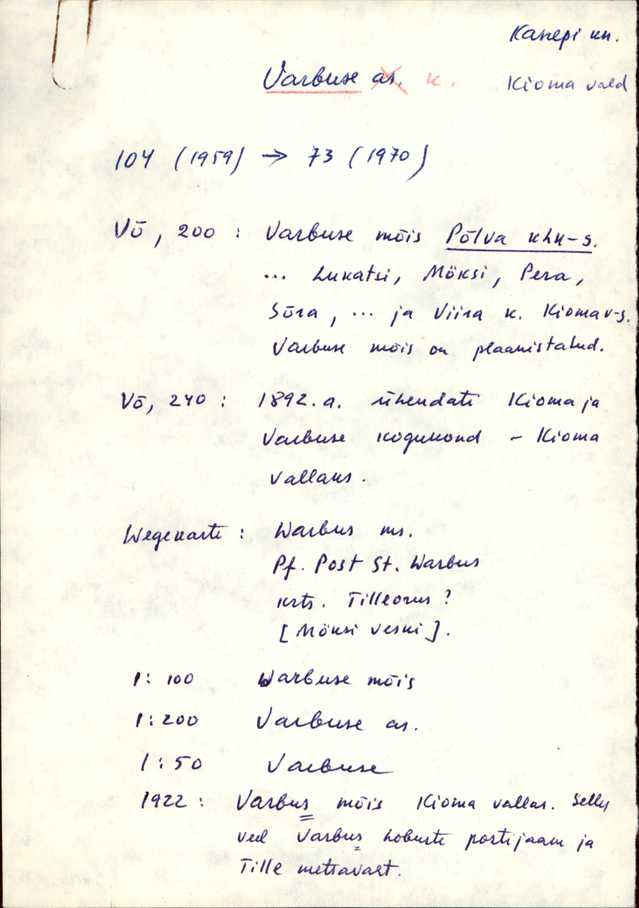 Kanepi kh.
Varbuse as. k.
Kioma vald
104 (1959) → 73 (1970)
Võ, 200 : Varbuse mõis Põlva khk-s.
... Lukatsi, Mõksi, Pera,
Sõra, ... ja Viira k. Kioma v-s.
Varbuse mõis on plaanistatud.
Võ, 240 : 1892. a. ühendati Kioma ja
Varbuse kogukond – Kioma
vallaks.
Wegekarte : Warbus ms.
Pf. Post St. Warbus
krts. Tilleorus ?
[Mõksi veski].
1: 100 Warbuse mõis
1: 200 Varbuse as.
1: 50 Varbuse
1922 : Varbus mõis Kioma vallas. Selles
veel Varbus hobuste postijaam ja
Tille metsavaht.